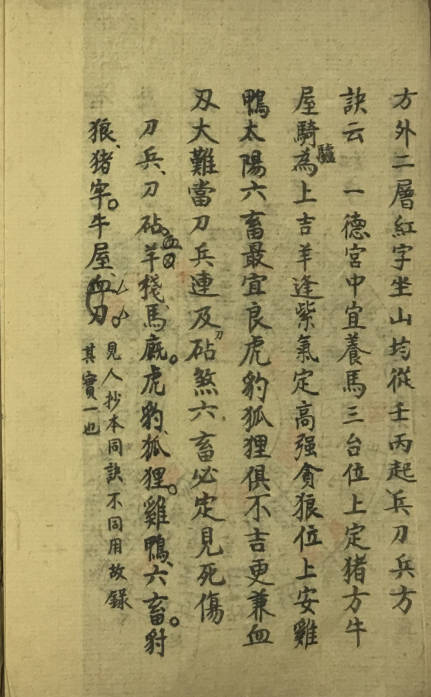 方外二層紅字坐山均從壬丙起兵刀兵方
訣云 一德宮中宜養馬三台位上定猪方牛
屋騎為驢上吉羊逢紫氣定高强貪狼位上安雞
鴨太陽六畜最宜良虎豹狐狸俱不吉更兼血
刄大難當刀兵連及砧煞六畜必定見死傷
刀兵、刀砧。羊棧馬廐。虎豹、狐狸。雞鴨、六畜。豺
狼、猪牢。牛屋、血刀。
見人抄本同訣不同用故錄
其實一也